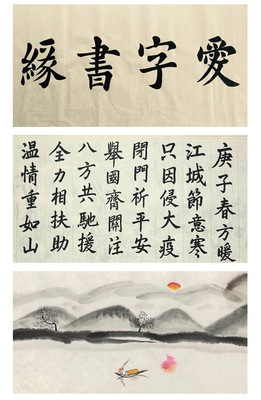 愛字書緣
庚子春方暖
江城節意寒
只因侵大疫
閉門祈平安
舉國齋開注
八方共馳援
全力相扶助
温情重如山